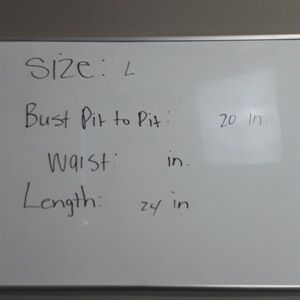 Size: L
Bust Pit to Pit: 20 in.
Waist: in.
Length: 24 in